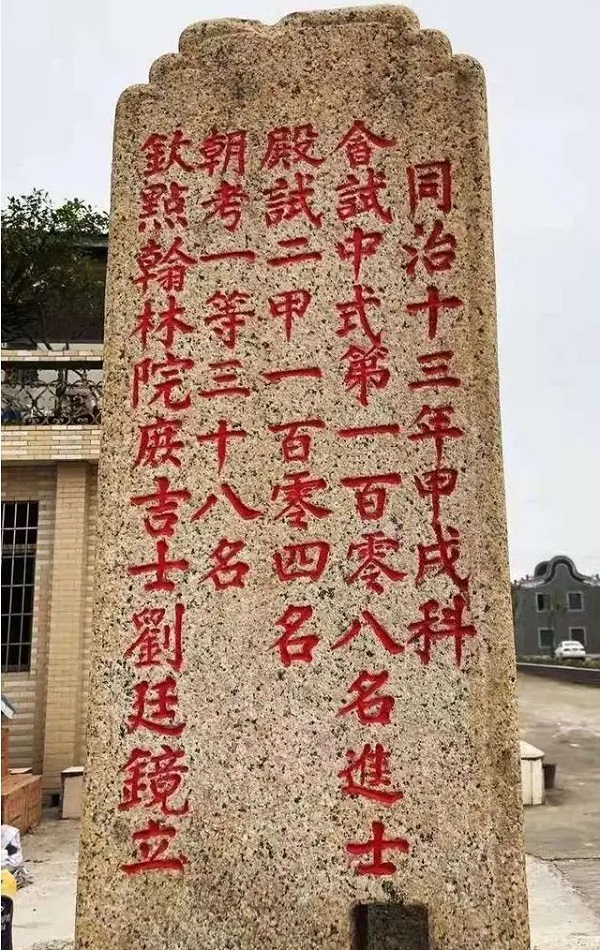 同治十三年甲戌科
會試中式第一百零八名進士
殿試二甲一百零四名
朝考一等三十八名
欽點翰林院庶吉士劉廷鏡立